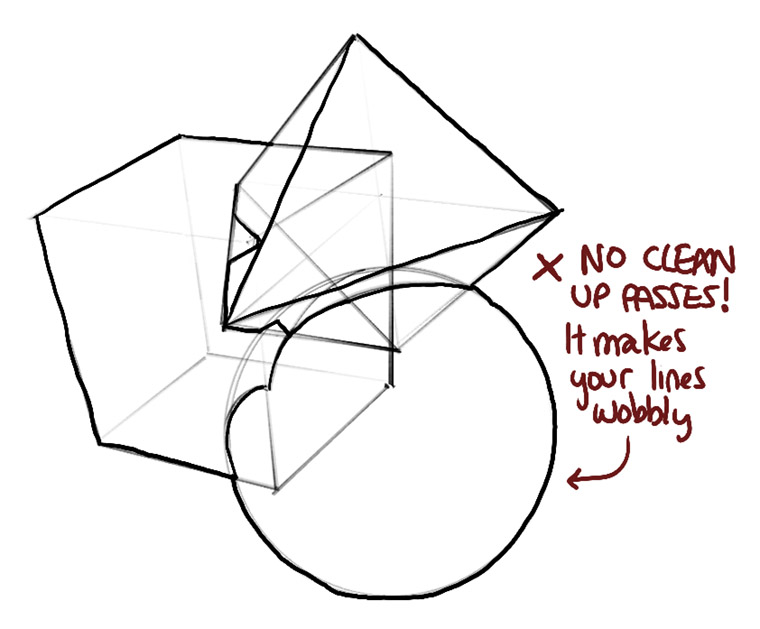 × NO CLEAN
UP PASSES!
It makes
your lines
wobbly